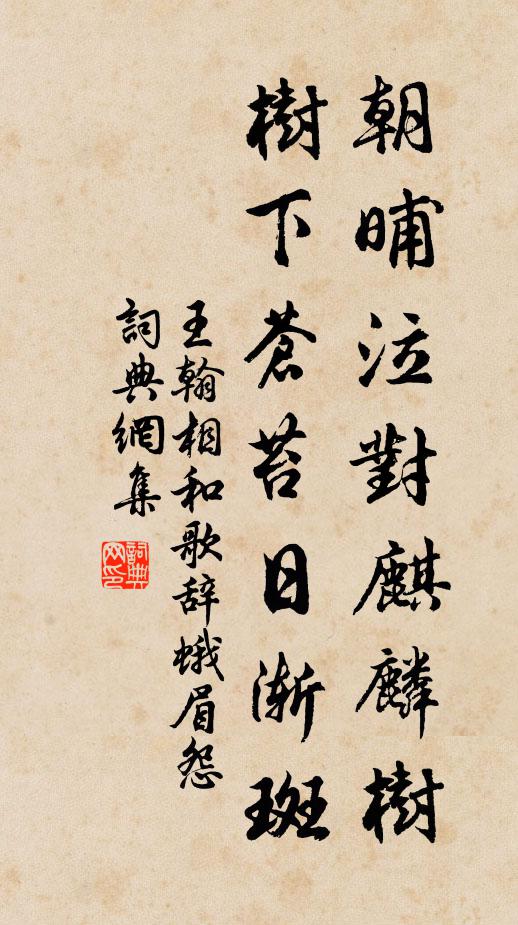 朝晡泣對麒麟樹
樹下蒼苔日漸斑
王翰相和歌辞蛾眉怨
詞典網集
詞典
网印